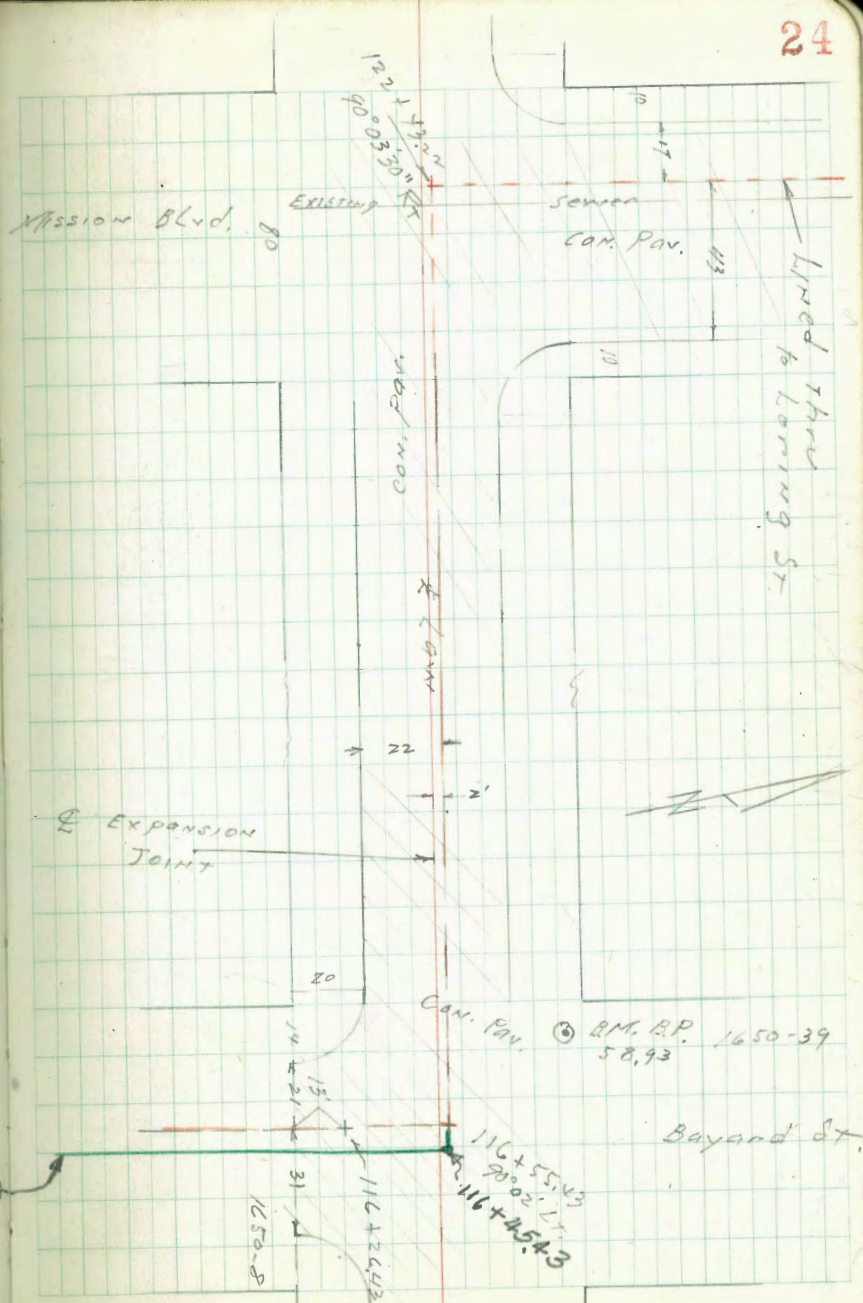 24
122 + 43.22
90°03'30" Rt
10
17
Mission Blvd. 80
Existing sewer
Con. Pav.
43
Lined thru
to Loring St
10
Con. Pav.
℄ Law
22
2'
℄ Expansion
Joint
20
Con. Pav.
B.M. B.P. 1650-39
58.93
14
21
15'
Bayard St.
116 + 55.43
90°02' Lt
116 + 45.43
31
116 + 26.43
1650-8